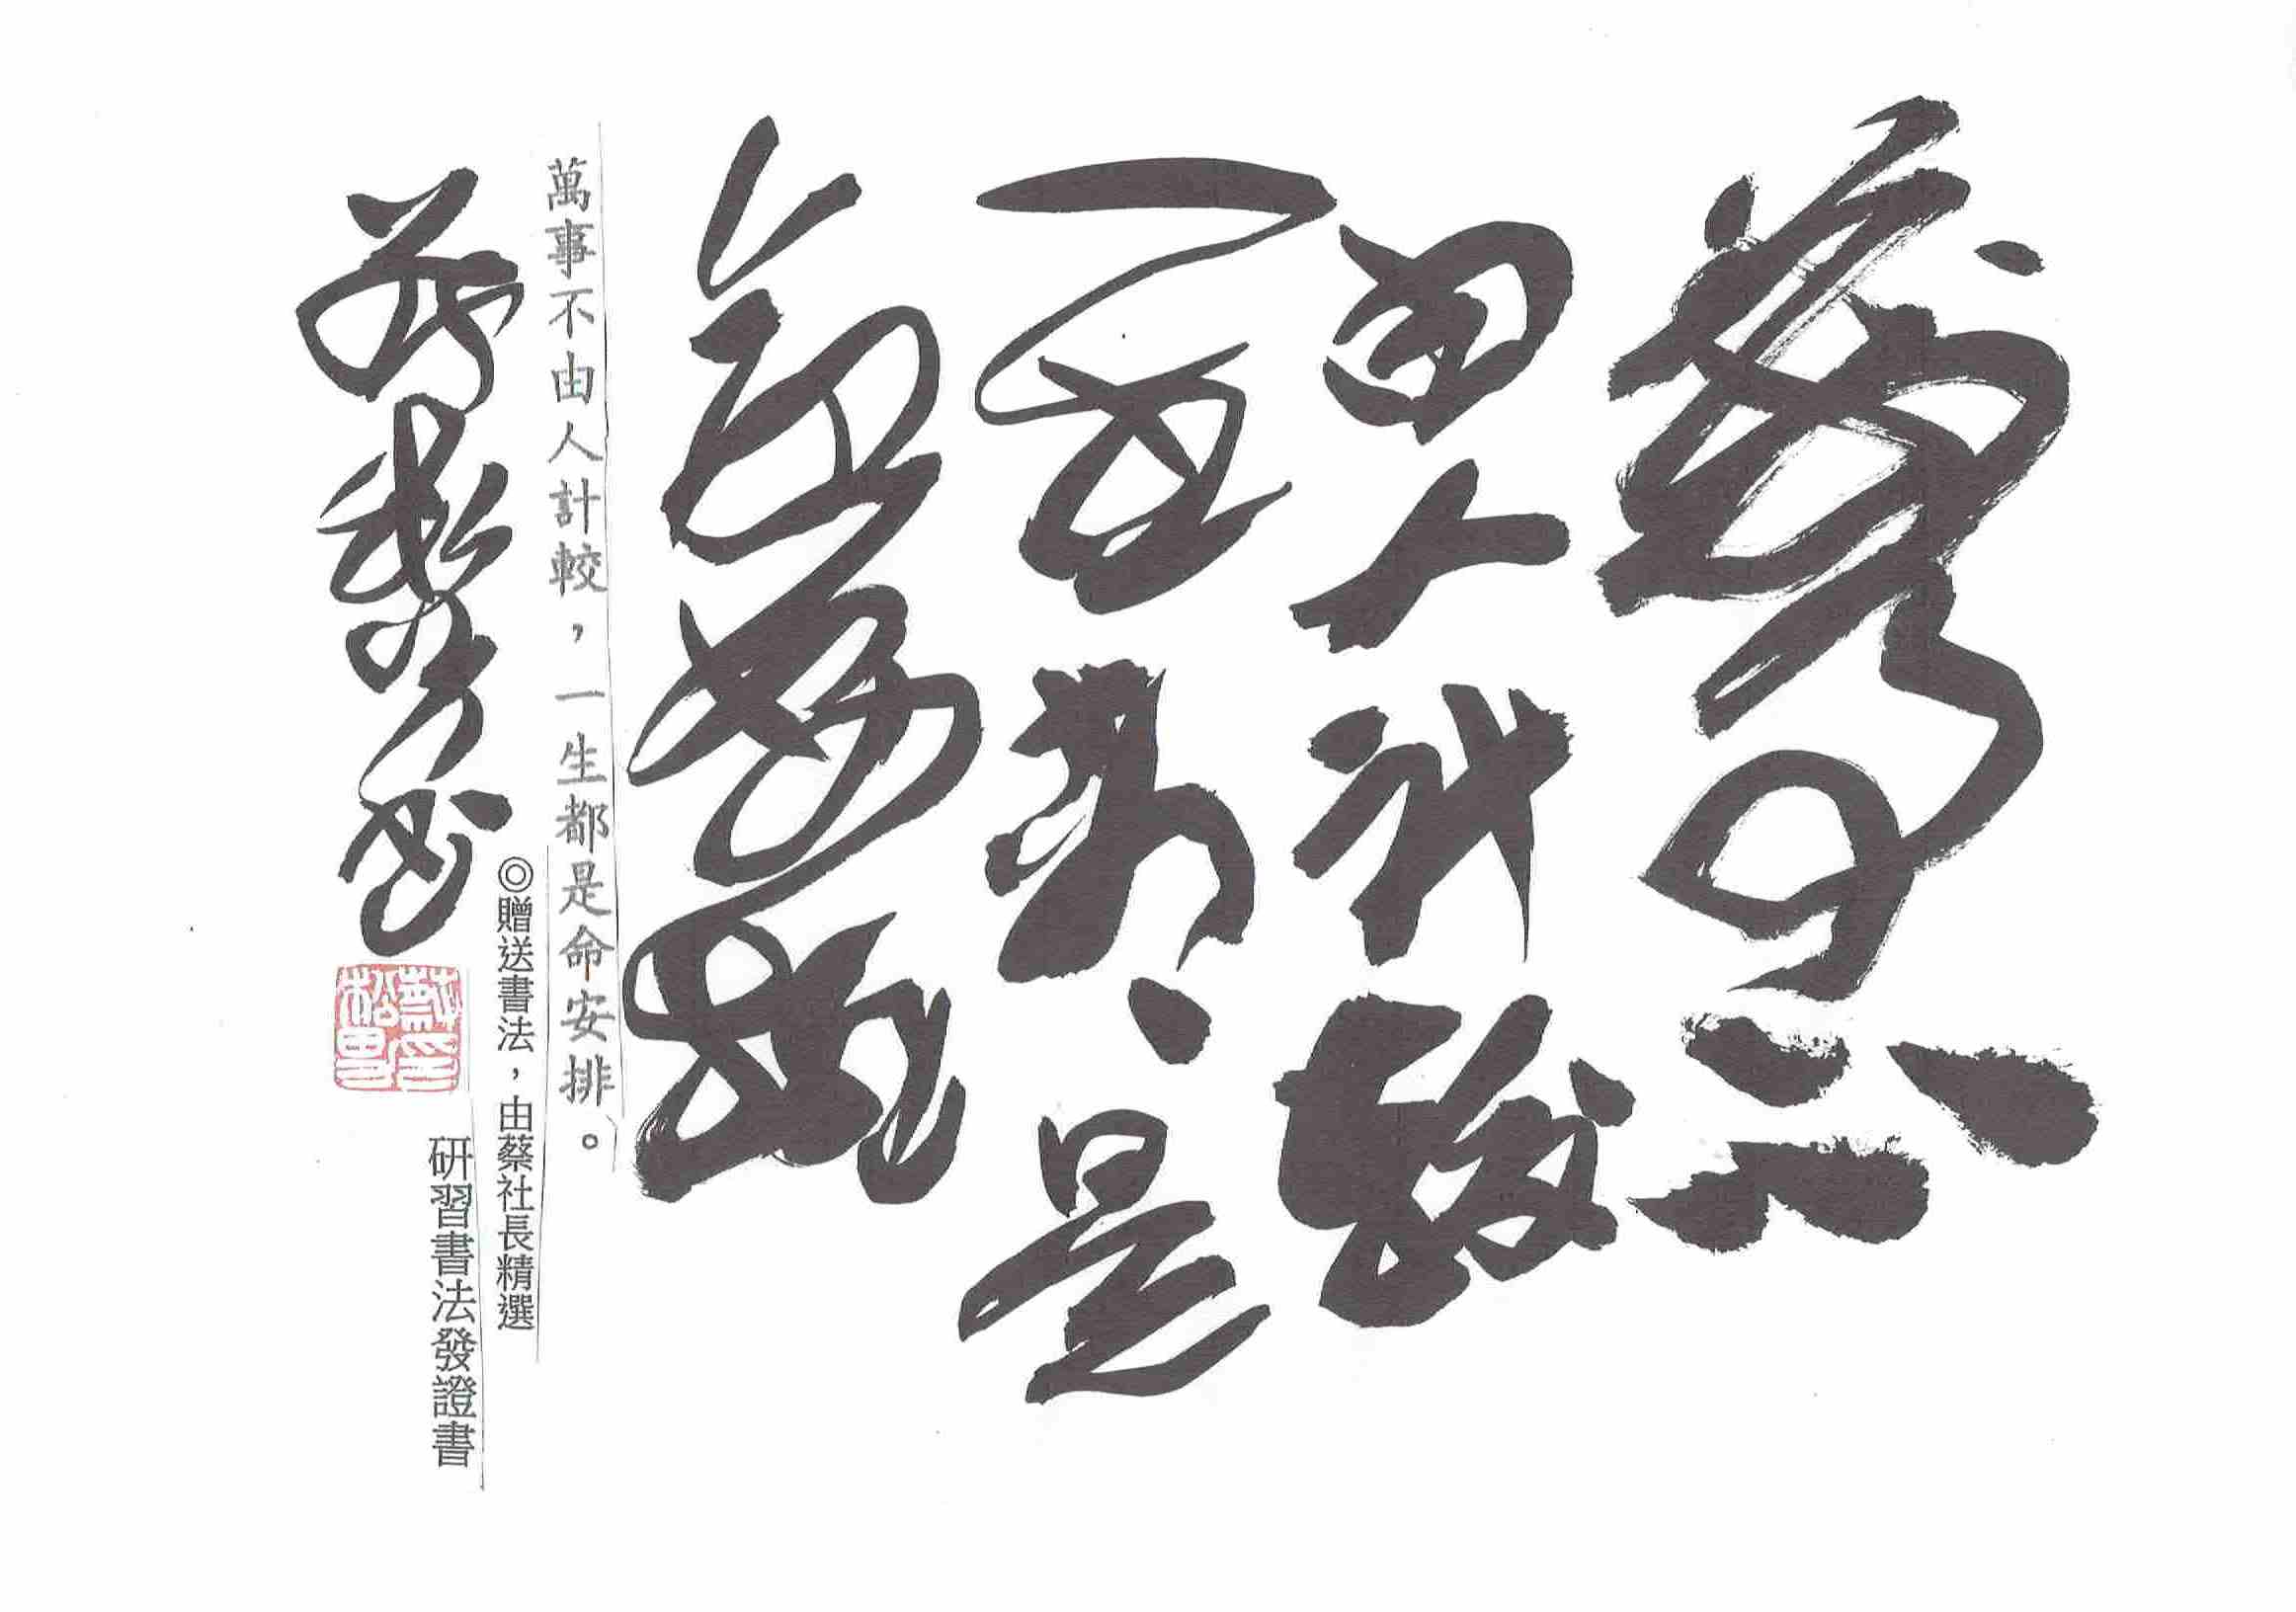 萬事不
由人計較
一生都是
命安排
萬事不由人計較，一生都是命安排。
◎贈送書法，由蔡社長精選
研習書法發證書